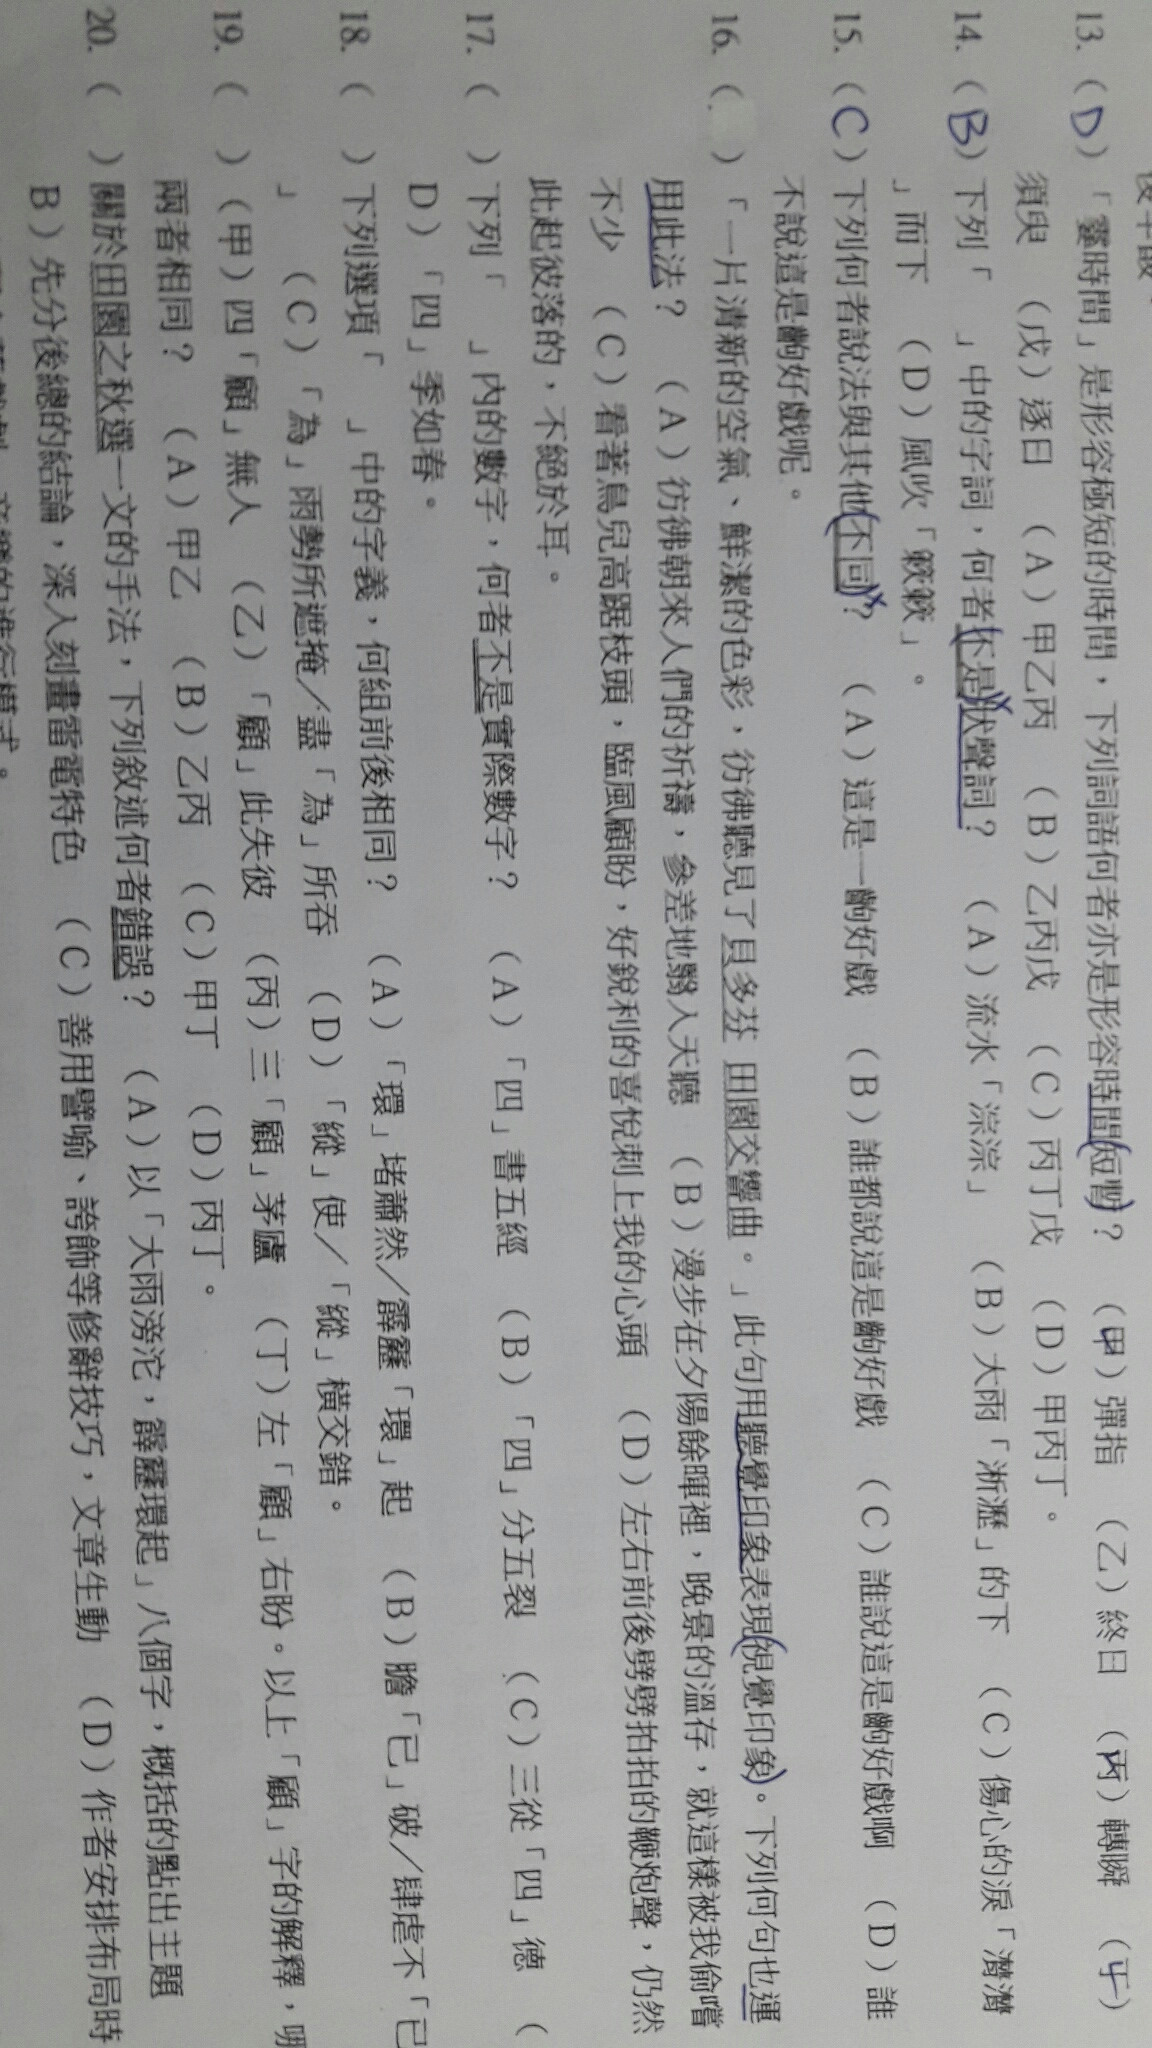 13.（D）「霎時間」是形容極短的時間，下列詞語何者亦是形容時間短暫？　（甲）彈指　（乙）終日　（丙）轉瞬　（丁）
須臾　（戊）逐日　（A）甲乙丙　（B）乙丙戊　（C）丙丁戊　（D）甲丙丁。
14.（B）下列「　」中的字詞，何者不是狀聲詞？　（A）流水「淙淙」　（B）大雨「淅瀝」的下　（C）傷心的淚「潸潸
」而下　（D）風吹「簌簌」。
15.（C）下列何者說法與其他不同？　（A）這是一齣好戲　（B）誰都說這是齣好戲　（C）誰說這是齣好戲啊　（D）誰
不說這是齣好戲呢。
16.（　）「一片清新的空氣、鮮潔的色彩，彷彿聽見了貝多芬 田園交響曲。」此句用聽覺印象表現視覺印象。下列何句也運
用此法？　（A）彷彿朝來人們的祈禱，參差地翳入天聽　（B）漫步在夕陽餘暉裡，晚景的溫存，就這樣被我偷嚐
不少　（C）看著鳥兒高踞枝頭，臨風顧盼，好銳利的喜悅刺上我的心頭　（D）左右前後劈劈拍拍的鞭炮聲，仍然
此起彼落的，不絕於耳。
17.（　）下列「　」內的數字，何者不是實際數字？　（A）「四」書五經　（B）「四」分五裂　（C）三從「四」德　（
D）「四」季如春。
18.（　）下列選項「　」中的字義，何組前後相同？　（A）「環」堵蕭然／霹靂「環」起　（B）膽「已」破／肆虐不「已
」　（C）「為」雨勢所遮掩／盡「為」所吞　（D）「縱」使／「縱」橫交錯。
19.（　）（甲）四「顧」無人　（乙）「顧」此失彼　（丙）三「顧」茅廬　（丁）左「顧」右盼。以上「顧」字的解釋，哪
兩者相同？　（A）甲乙　（B）乙丙　（C）甲丁　（D）丙丁。
20.（　）關於田園之秋選一文的手法，下列敘述何者錯誤？　（A）以「大雨滂沱，霹靂環起」八個字，概括的點出主題　（
B）先分後總的結論，深入刻畫雷電特色　（C）善用譬喻、誇飾等修辭技巧，文章生動　（D）作者安排布局時